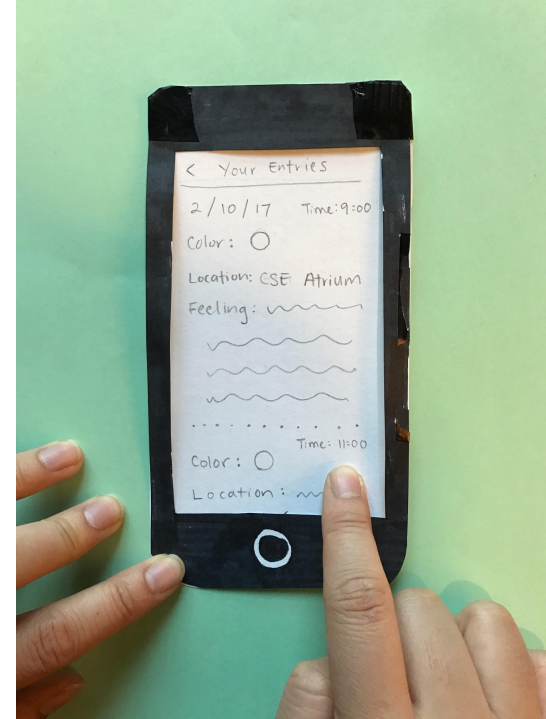 < Your Entries
2/10/17 Time: 9:00
Color:
Location: CSE Atrium
Feeling:
Time: 11:00
Color:
Location: